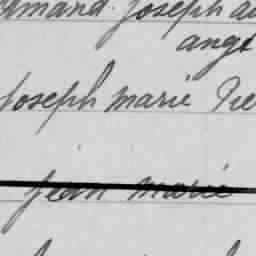 Armand Joseph
ange
Joseph Marie
Jean Marie